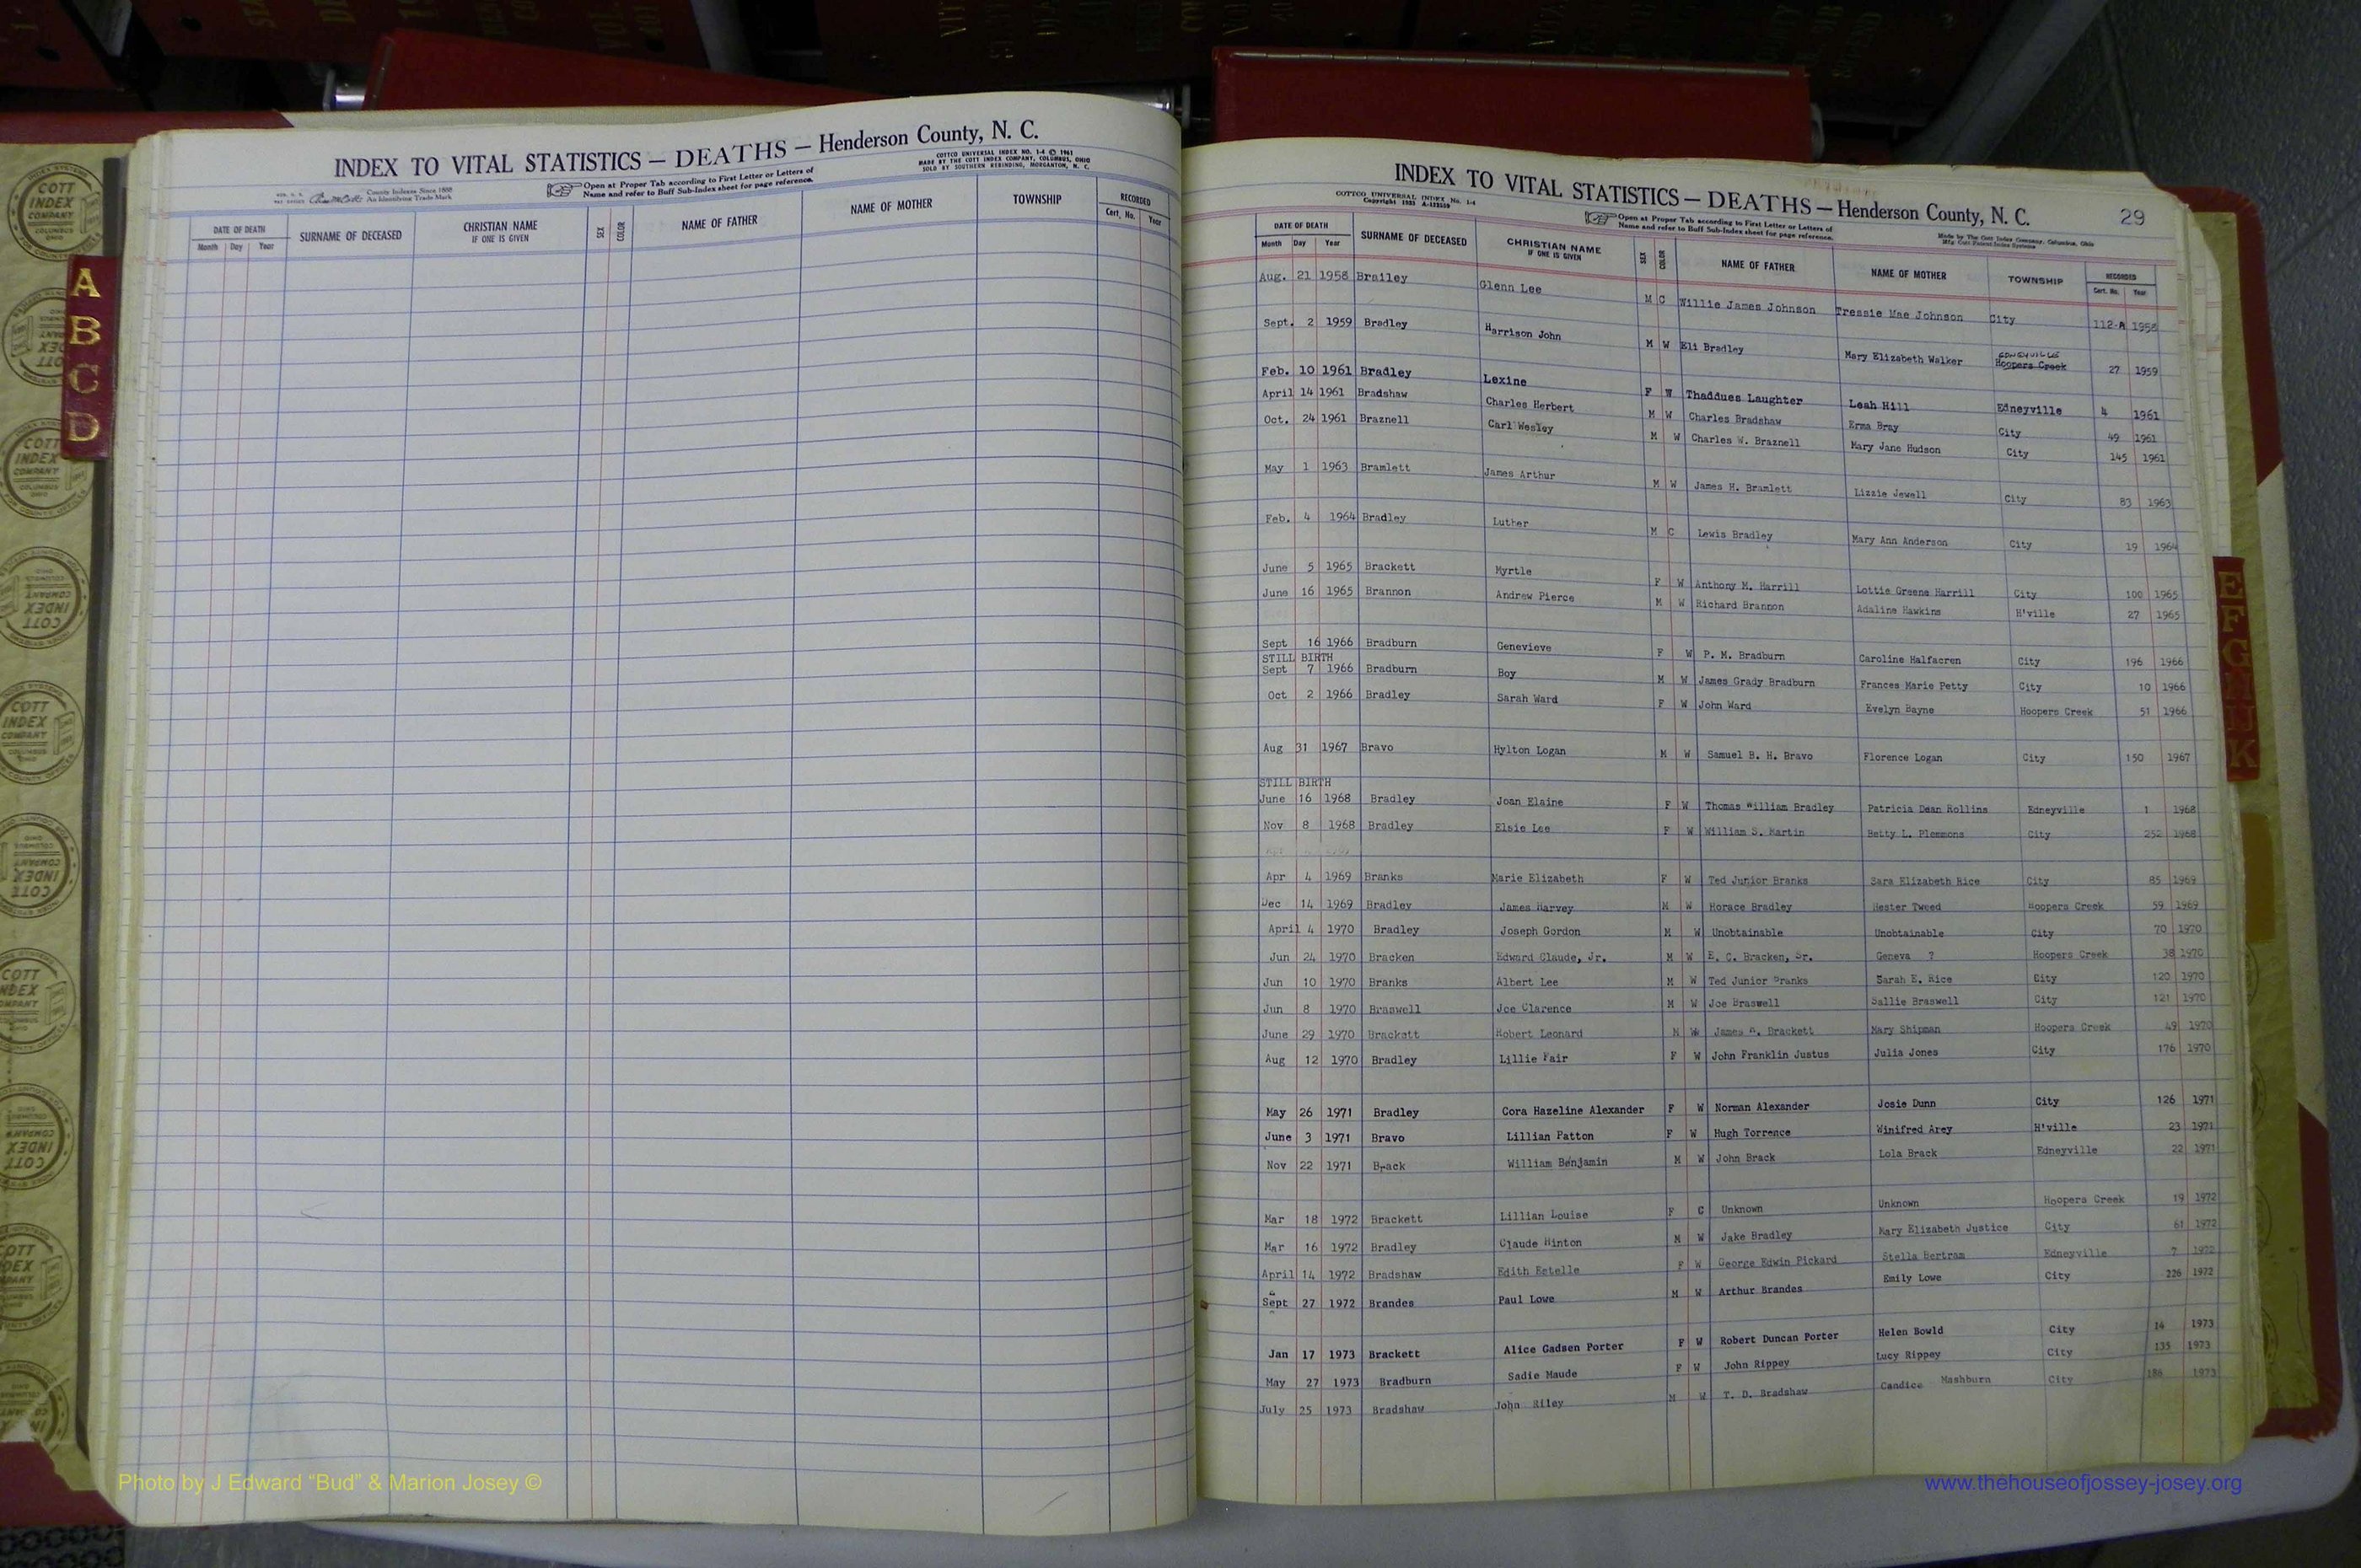 INDEX TO VITAL STATISTICS — DEATHS — Henderson County, N. C.
COTTCO UNIVERSAL INDEX NO. 1-4 © 1961
MADE BY THE COTT INDEX COMPANY, COLUMBUS, OHIO
SOLD BY SOUTHERN REBINDING, MORGANTON, N. C.
County Indexes Since 1888
An Identifying Trade Mark
Open at Proper Tab according to First Letter or Letters of
Name and refer to Buff Sub-Index sheet for page reference.
DATE OF DEATH
Month Day Year
SURNAME OF DECEASED
CHRISTIAN NAME
IF ONE IS GIVEN
SEX
COLOR
NAME OF FATHER
NAME OF MOTHER
TOWNSHIP
RECORDED
Cert. No. Year
A
B
C
D
COTT
INDEX
COMPANY
COLUMBUS
OHIO
INDEX TO VITAL STATISTICS — DEATHS — Henderson County, N. C.
29
COTTCO UNIVERSAL INDEX No. 1-4
Open at Proper Tab according to First Letter or Letters of
Name and refer to Buff Sub-Index sheet for page reference.
Made by The Cott Index Company, Columbus, Ohio
DATE OF DEATH
Month Day Year
SURNAME OF DECEASED
CHRISTIAN NAME
IF ONE IS GIVEN
SEX
COLOR
NAME OF FATHER
NAME OF MOTHER
TOWNSHIP
RECORDED
Cert. No. Year
Aug. 21 1958 Brailey Glenn Lee M C Willie James Johnson Tressie Mae Johnson City 112-A 1958
Sept. 2 1959 Bradley Harrison John M W Eli Bradley Mary Elizabeth Walker EDNEYVILLE Hoopers Creek 27 1959
Feb. 10 1961 Bradley Lexine F W Thaddues Laughter Leah Hill Edneyville 4 1961
April 14 1961 Bradshaw Charles Herbert M W Charles Bradshaw Erma Bray City 49 1961
Oct. 24 1961 Braznell Carl Wesley M W Charles W. Braznell Mary Jane Hudson City 145 1961
May 1 1963 Bramlett James Arthur M W James H. Bramlett Lizzie Jewell City 83 1963
Feb. 4 1964 Bradley Luther M C Lewis Bradley Mary Ann Anderson City 19 1964
June 5 1965 Brackett Myrtle F W Anthony M. Harrill Lottie Greene Harrill City 100 1965
June 16 1965 Brannon Andrew Pierce M W Richard Brannon Adaline Hawkins H'ville 27 1965
Sept 16 1966 Bradburn Genevieve F W P. M. Bradburn Caroline Halfacren City 196 1966
STILL BIRTH
Sept 7 1966 Bradburn Boy M W James Grady Bradburn Frances Marie Petty City 10 1966
Oct 2 1966 Bradley Sarah Ward F W John Ward Evelyn Bayne Hoopers Creek 51 1966
Aug 31 1967 Bravo Hylton Logan M W Samuel B. H. Bravo Florence Logan City 150 1967
STILL BIRTH
June 16 1968 Bradley Joan Elaine F W Thomas William Bradley Patricia Dean Rollins Edneyville 1 1968
Nov 8 1968 Bradley Elsie Lee F W William S. Martin Betty L. Plemmons City 252 1968
Apr 4 1969 Branks Marie Elizabeth F W Ted Junior Branks Sara Elizabeth Rice City 85 1969
Dec 14 1969 Bradley James Harvey M W Horace Bradley Hester Tweed Hoopers Creek 59 1969
April 4 1970 Bradley Joseph Gordon M W Unobtainable Unobtainable City 70 1970
Jun 24 1970 Bracken Edward Claude, Jr. M W E. C. Bracken, Sr. Geneva ? Hoopers Creek 38 1970
Jun 10 1970 Branks Albert Lee M W Ted Junior Branks Sarah E. Rice City 120 1970
Jun 8 1970 Braswell Joe Clarence M W Joe Braswell Sallie Braswell City 121 1970
June 29 1970 Brackett Robert Leonard M W James Brackett Mary Shipman Hoopers Creek 49 1970
Aug 12 1970 Bradley Lillie Fair F W John Franklin Justus Julia Jones City 176 1970
May 26 1971 Bradley Cora Hazeline Alexander F W Norman Alexander Josie Dunn City 126 1971
June 3 1971 Bravo Lillian Patton F W Hugh Torrence Winifred Arey H'ville 23 1971
Nov 22 1971 Brack William Benjamin M W John Brack Lola Brack Edneyville 22 1971
Mar 18 1972 Brackett Lillian Louise F C Unknown Unknown Hoopers Creek 19 1972
Mar 16 1972 Bradley Claude Hinton M W Jake Bradley Mary Elizabeth Justice City 61 1972
April 14 1972 Bradshaw Edith Estelle F W George Edwin Pickard Stella Bertram Edneyville 7 1972
Sept 27 1972 Brandes Paul Lowe M W Arthur Brandes Emily Lowe City 226 1972
Jan 17 1973 Brackett Alice Gadsen Porter F W Robert Duncan Porter Helen Bowld City 14 1973
May 27 1973 Bradburn Sadie Maude F W John Rippey Lucy Rippey City 135 1973
July 25 1973 Bradshaw John Riley M W T. D. Bradshaw Candice Mashburn City 186 1973
E
F
G
K
Photo by J Edward “Bud” & Marion Josey ©
www.thehouseofjossey-josey.org